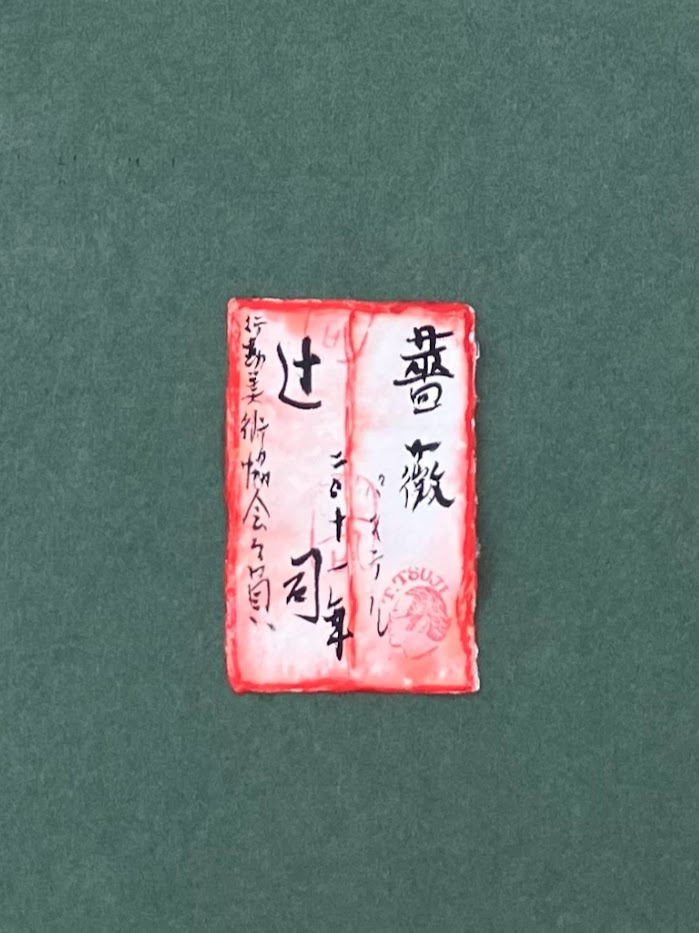 薔薇
パステル
T.TSUJI
二〇十一年
辻 司
行動美術協会々員